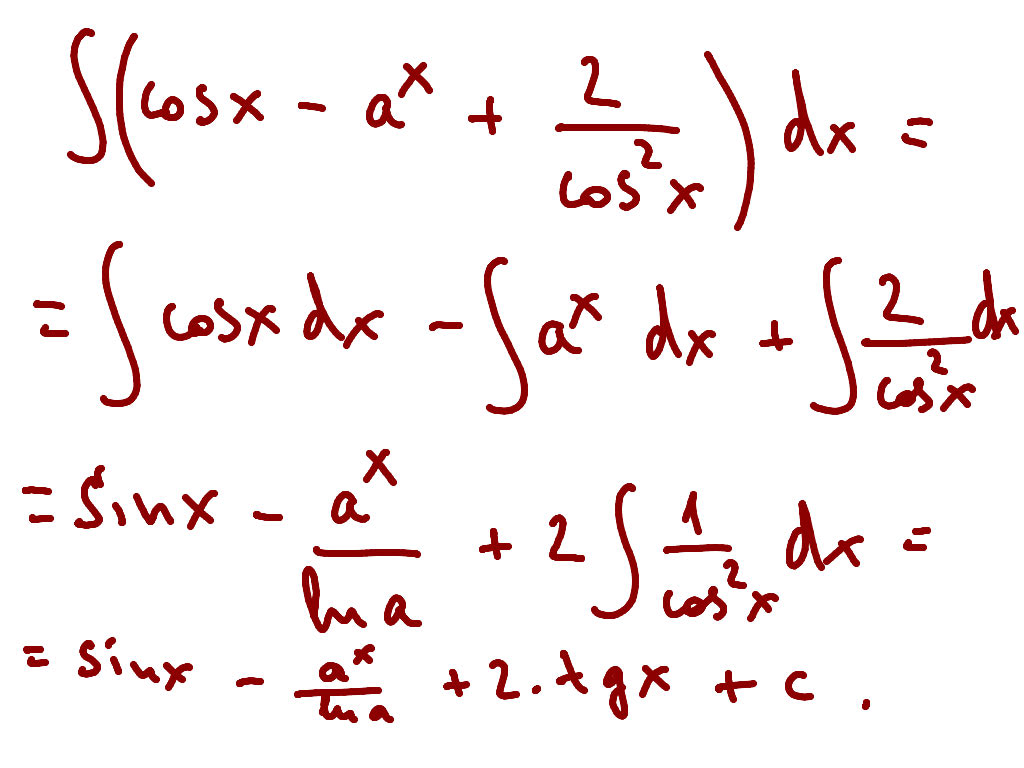 ∫(cosx - a^x + 2/cos²x) dx =
= ∫ cosx dx - ∫ a^x dx + ∫ 2/cos²x dx
= sinx - a^x/ln a + 2 ∫ 1/cos²x dx =
= sinx - a^x/ln a + 2 · tgx + c .